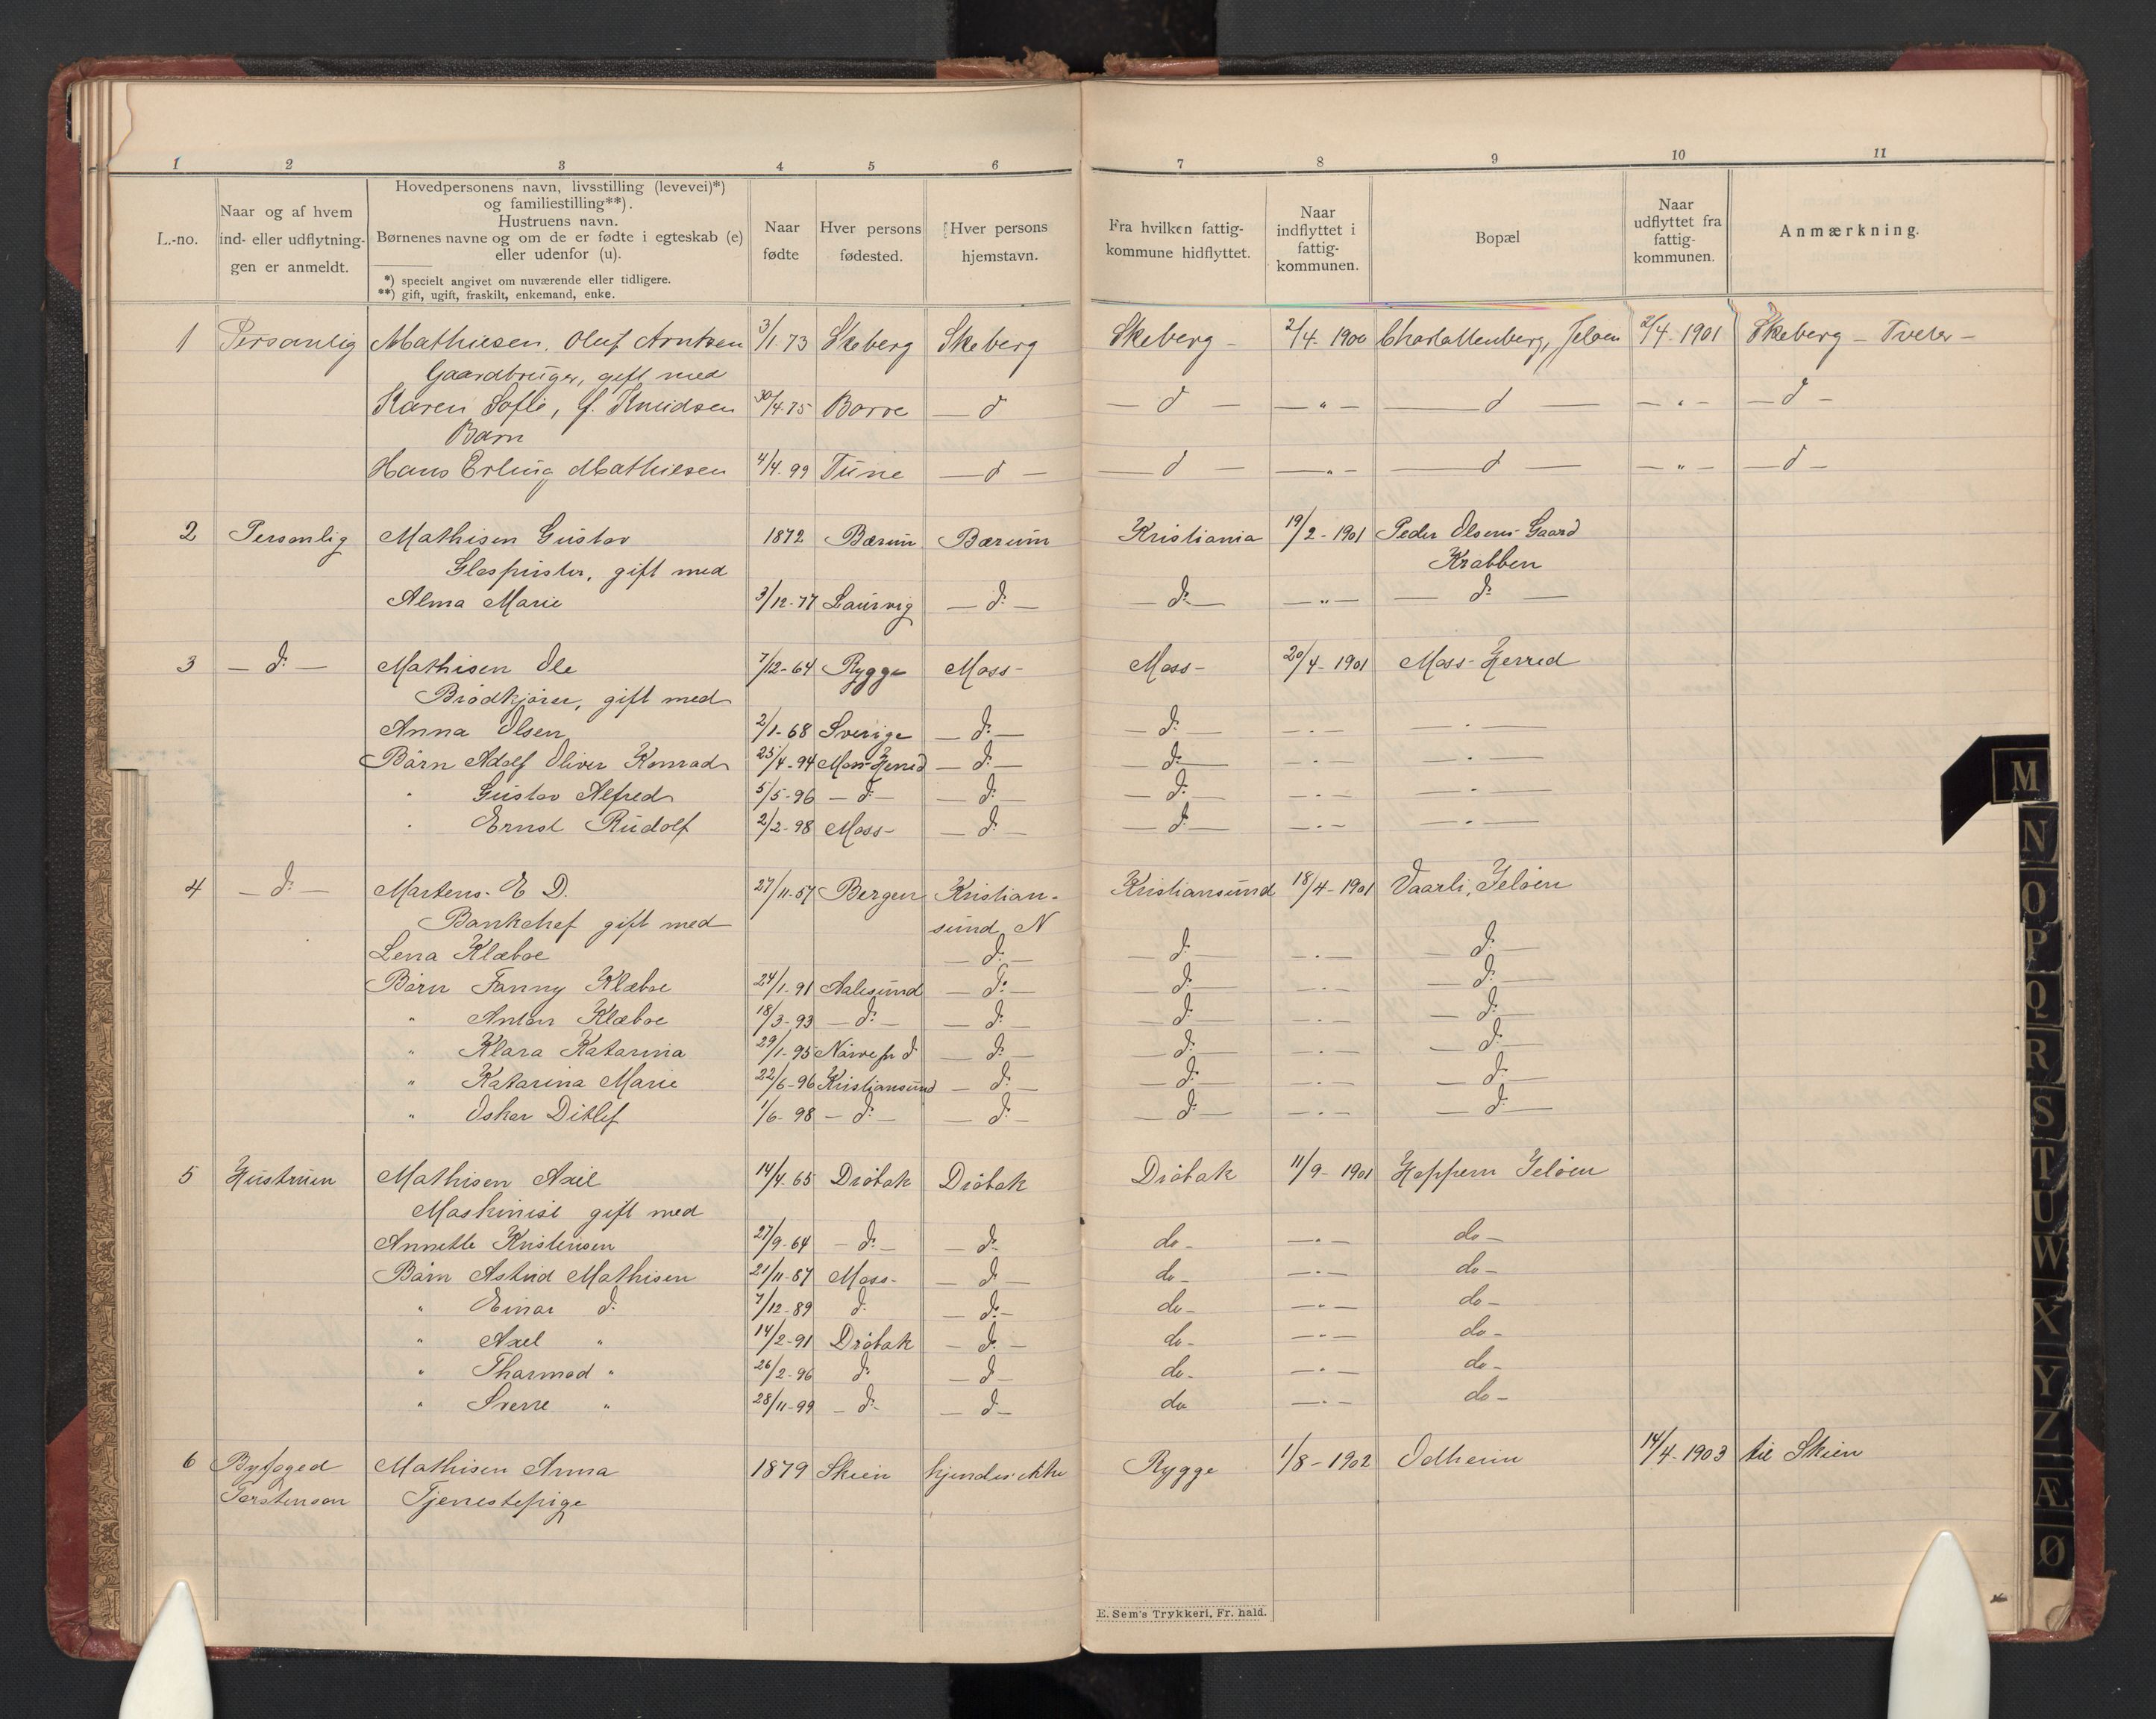 1 2 3 4 5 6 7 8 9 10 11
L.-no.
Naar og af hvem
ind- eller udflytnin-
gen er anmeldt.
Hovedpersonens navn, livsstilling (levevei)*)
og familiestilling**).
Hustruens navn.
Børnenes navne og om de er fødte i egteskab (e)
eller udenfor (u).
*) specielt angivet om nuværende eller tidligere.
**) gift, ugift, fraskilt, enkemand, enke.
Naar
fødte
Hver persons
fødested.
Hver persons
hjemstavn.
Fra hvilken fattig-
kommune hidflyttet.
Naar
indflyttet i
fattig-
kommunen.
Bopæl
Naar
udflyttet fra
fattig-
kommunen.
Anmærkning.
1 Personlig Mathiesen, Oluf Arntsen 3/1.73 Skeberg Skeberg Skeberg - 2/4. 1900 Charlottenberg, Jeløen 2/4. 1901 Skeberg - Tveter -
Gaardbruger, gift med
Karen Sofie, f. Knudsen 30/4.75 Borre - d - d - - " - - d - - " - - d -
Barn
Hans Erling Mathiesen 4/4.99 Tune - d - - d - - " - - d - - " - - d -
2 Personlig Mathisen Gustav 1872 Bærum Bærum Kristiania 19/2 - 1901 Peder Olsens Gaard
Glaspuster, gift med Krabben
Alma Marie 3/12-77 Laurvig - d: - - d: - - " - - d: -
3 - d: - Mathisen Ole 7/12-64 Rygge Moss - Moss - 20/4 - 1901 Moss Herred
Brødkjører, gift med
Anna Olsen 2/1-68 Sverige - d: - - d: - - " - - " -
Børn Adolf Oliver Konrad 25/4-94 Moss Herred - d: - - d: - - " - - " -
" Gustav Alfred 5/5-96 - d: - - d: - - d: - - " - - " -
" Ernst Rudolf 2/2-98 Moss - - d: - - d: - - " - - " -
4 - d: - Martens. E D. 27/11-57 Bergen Kristian- Kristiansund 18/4 - 1901 Vaarli, Jeløen
Bankchef gift med sund N
Lena Klæboe - d: - - d: - - " - - d: -
Børn Fanny Klæboe 24/1-91 Aalesund - d: - - d: - - " - - d: -
" Anton Klæboe 18/3-93 - d: - - d: - - d: - - " - - d: -
" Klara Katarina 29/1-95 Nørve pr d - d: - - d: - - " - - d: -
" Katarina Marie 22/6-96 Kristiansund - d: - - d: - - " - - d: -
" Oskar Ditlef 1/6-98 - d: - - d: - - d: - - " - - d: -
5 Hustruen Mathisen Axel 14/4-65 Drøbak Drøbak Drøbak 11/9 - 1901 Hoppern Jeløen
Maskinist gift med
Annette Kristensen 27/9-64 - d: - - d: do - - " - do -
Børn Astrid Mathisen 21/11-87 Moss - - d: - do - - " - do -
" Einar d: 7/12-89 d: - d: - do - - " - do -
" Axel " 14/2-91 Drøbak - d: - do - - " - do -
" Thormod " 26/2-96 d: - d - do - - " - do -
" Sverre " 28/11-99 - d: - - d - do - " - do -
6 Byfoged Mathisen Anna 1879 Skien kjendes ikke Rygge 1/8 - 1902 Odheim 14/4 - 1903 til Skien
Torstenson Tjenestepige
E. Sem's Trykkeri, Fr. hald.
M
N
O
P
Q
R
S
T
U
W
X
Y
Z
Æ
Ø